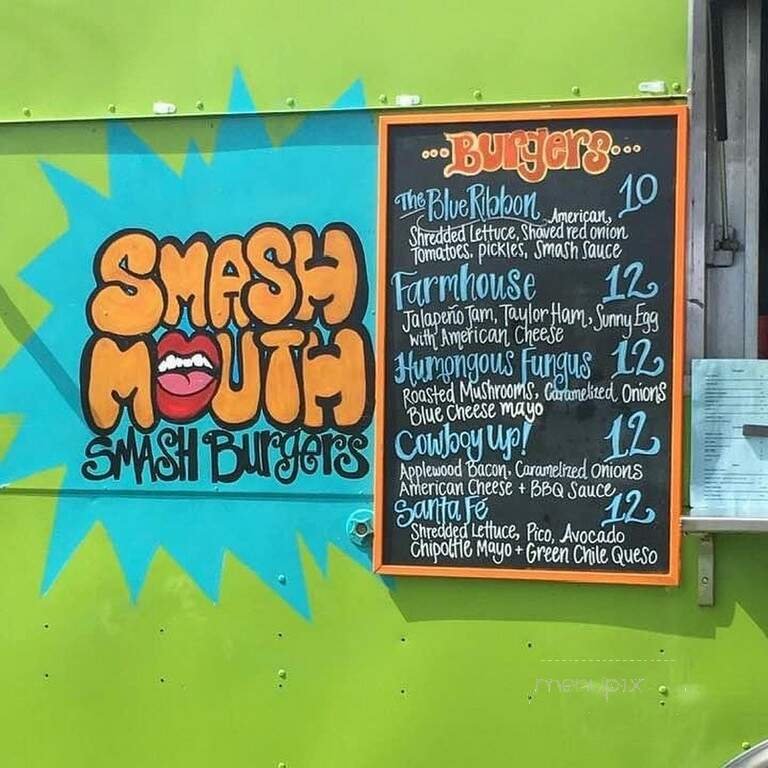 SMASH
MOUTH
SMASH Burgers
...Burgers...
The Blue Ribbon 10
American,
Shredded Lettuce, Shaved red onion
Tomatoes, pickles, Smash Sauce
Farmhouse 12
Jalapeño Jam, Taylor Ham, Sunny Egg
with American Cheese
Humongous Fungus 12
Roasted Mushrooms, Caramelized Onions
Blue Cheese mayo
Cowboy Up! 12
Applewood Bacon, Caramelized Onions
American Cheese + BBQ Sauce
Santa Fé 12
Shredded Lettuce, Pico, Avocado
Chipoltle Mayo + Green Chile Queso
menupix